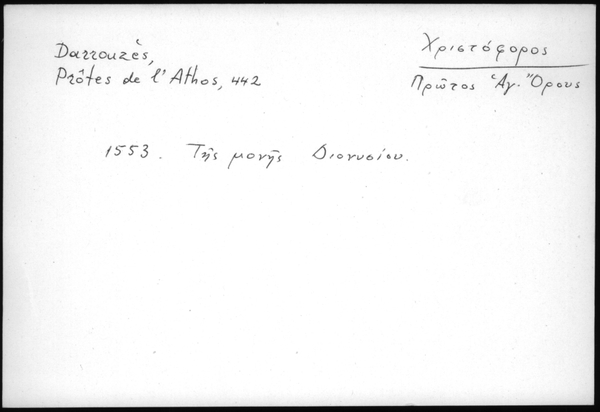 Darrouzès,
Prôtes de l'Athos, 442
Χριστόφορος
Πρῶτος Ἁγ. Ὄρους
1553. Τῆς μονῆς Διονυσίου.